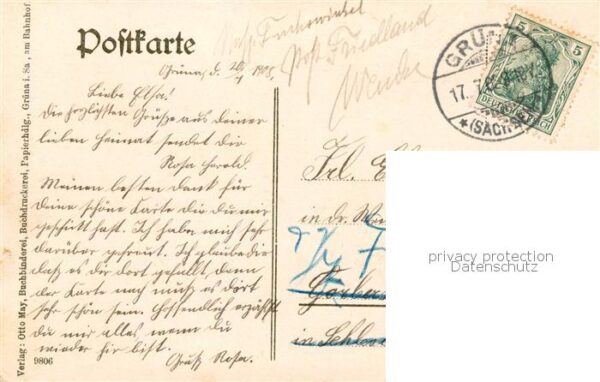 Verlag: Otto May, Buchbinderei, Buchdruckerei, Papierhdlg., Grüna i. Sa., am Bahnhof
9806
Postkarte
Grüna, d.
Liebe Elsa!
Die herzlichsten Grüsse aus deiner
lieben Heimat sendet dir
Rosa Herold.
Meinen besten Dank für
deine schöne Karte die du mir
geschickt hast. Ich habe mich sehr
darüber gefreut. Ich glaube dir
daß es dir dort gefällt, denn
der Karte nach muß es dort
sehr schön sein. Hoffendlich erzählst
du mir alles wenn du
wieder hir bist.
Gruß Rosa.
Post Friedland
GRÜNA
17.7.
(SACHSEN)
5 5
DEUTSCHES
Frl. El
in
in Schloss
privacy protection
Datenschutz